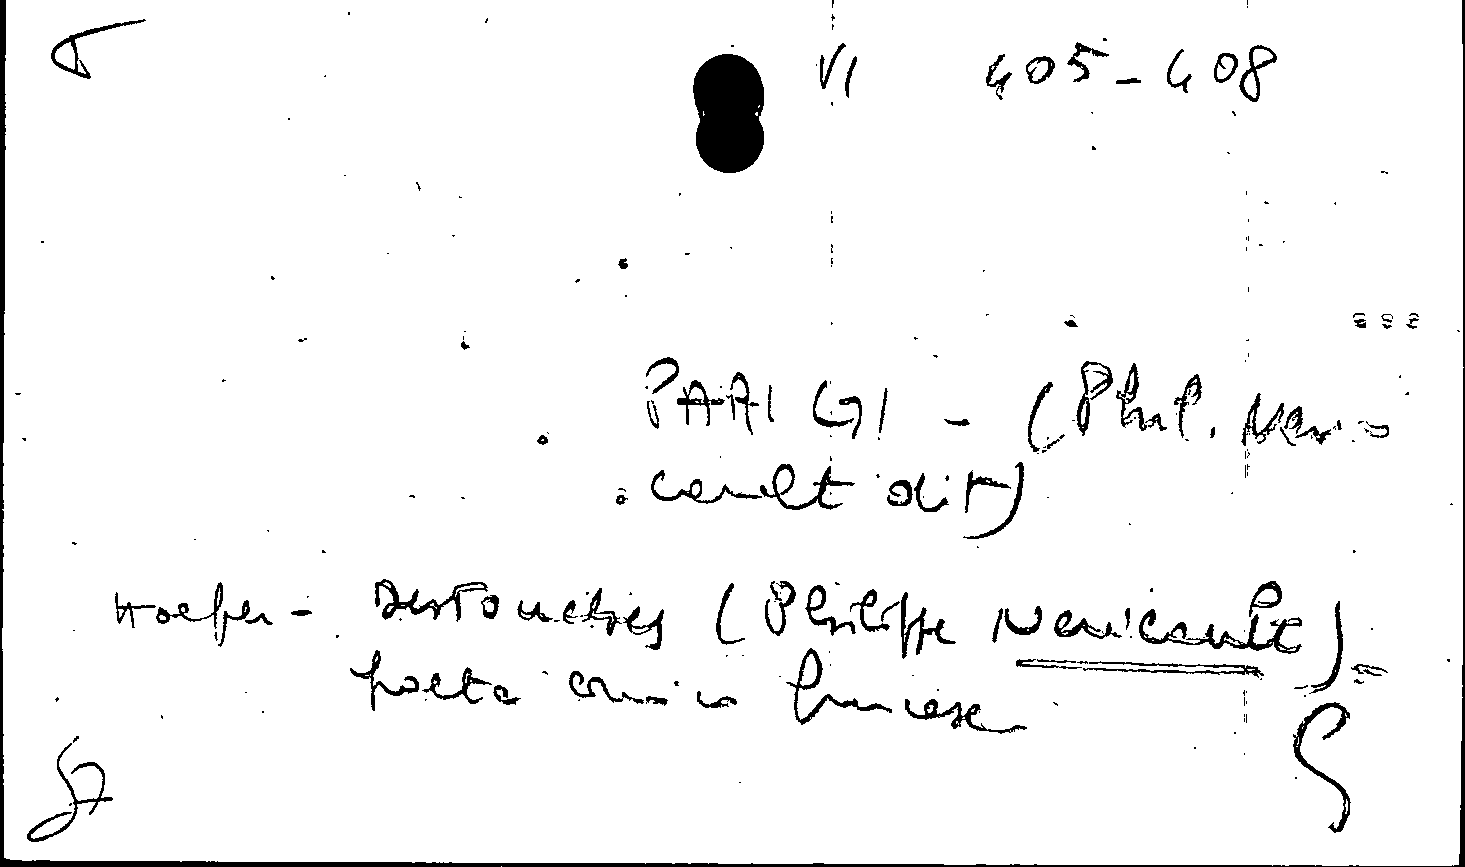 VI 405-408
PARIGI - (Phil. Neri-
cault dit)
Hoefer - Destouches (Philippe Nericault) -
poeta comico francese